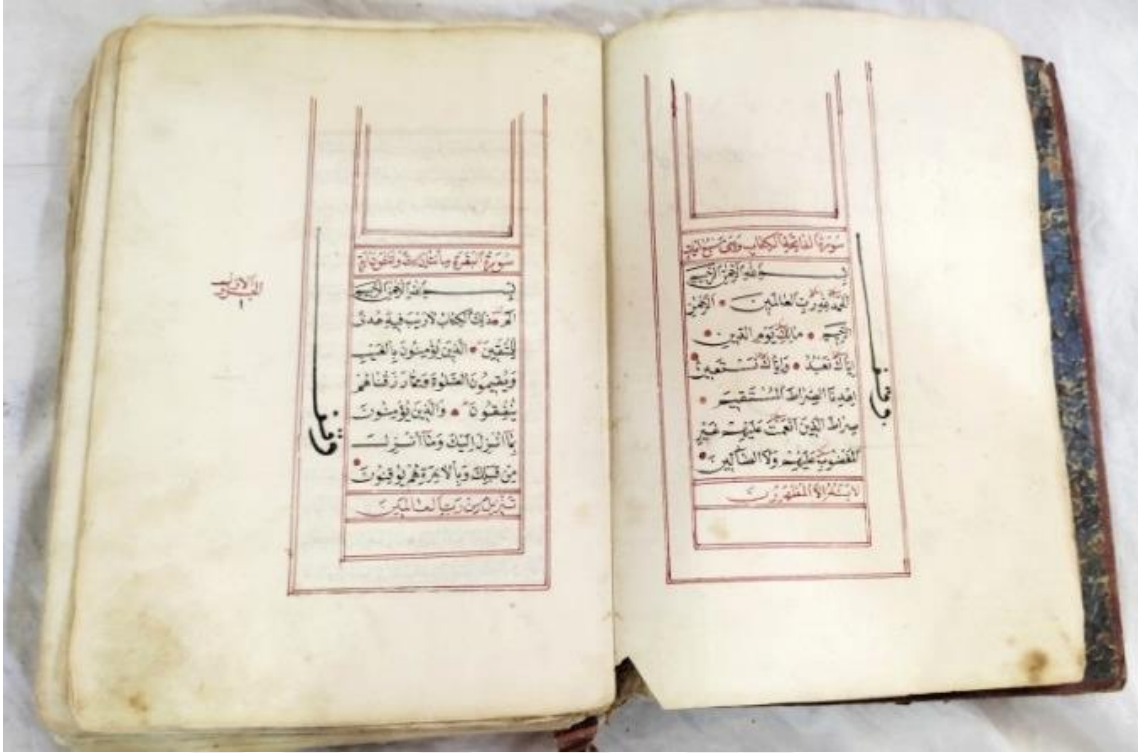 سورة الفاتحة الكتاب وهي سبع آيات
بسم الله الرحمن الرحيم
الحمد لله رب العالمين الرحمن
الرحيم مالك يوم الدين
إياك نعبد وإياك نستعين
اهدنا الصراط المستقيم
صراط الذين أنعمت عليهم غير
المغضوب عليهم ولا الضالين
لا يمسه إلا المطهرون
وقف
سورة البقرة مائتان
بسم الله الرحمن الرحيم
الم ذلك الكتاب لا ريب فيه هدى
للمتقين الذين يؤمنون بالغيب
ويقيمون الصلوة ومما رزقناهم
ينفقون والذين يؤمنون
بما أنزل إليك وما أنزل
من قبلك وبالآخرة هم يوقنون
تنزيل من رب العالمين
وقف